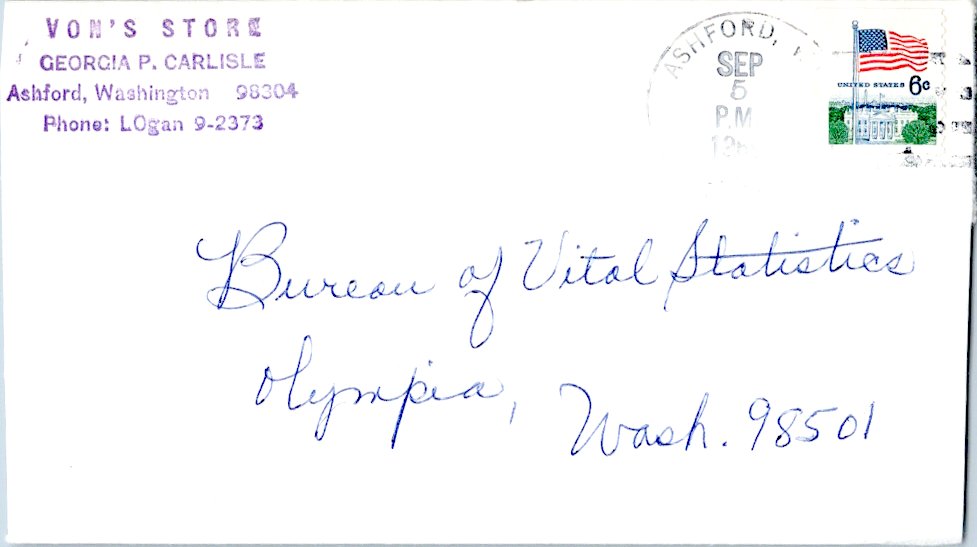 VON'S STORE
GEORGIA P. CARLISLE
Ashford, Washington 98304
Phone: LOgan 9-2373
ASHFORD,
SEP
5
P.M
UNITED STATES 6c
Bureau of Vital Statistics
Olympia, Wash. 98501